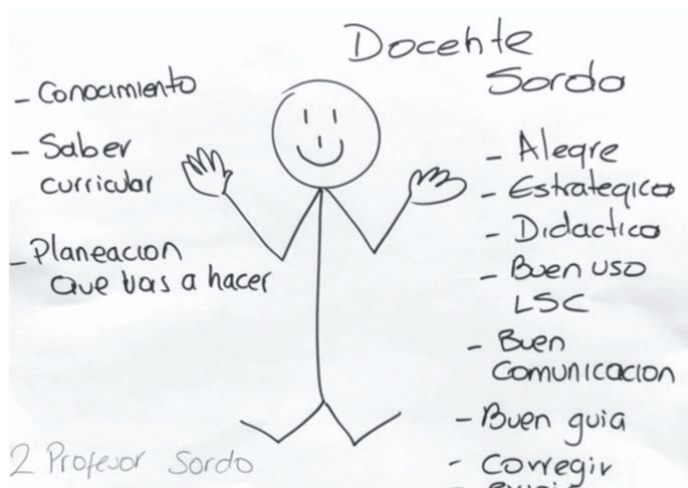 Docente
Sordo
- Conocimiento
- Saber
curricular
- Planeacion
que vas a hacer
- Alegre
- Estrategico
- Didactico
- Buen uso
LSC
- Buen
Comunicacion
- Buen guia
- Corregir
2 Profesor Sordo.